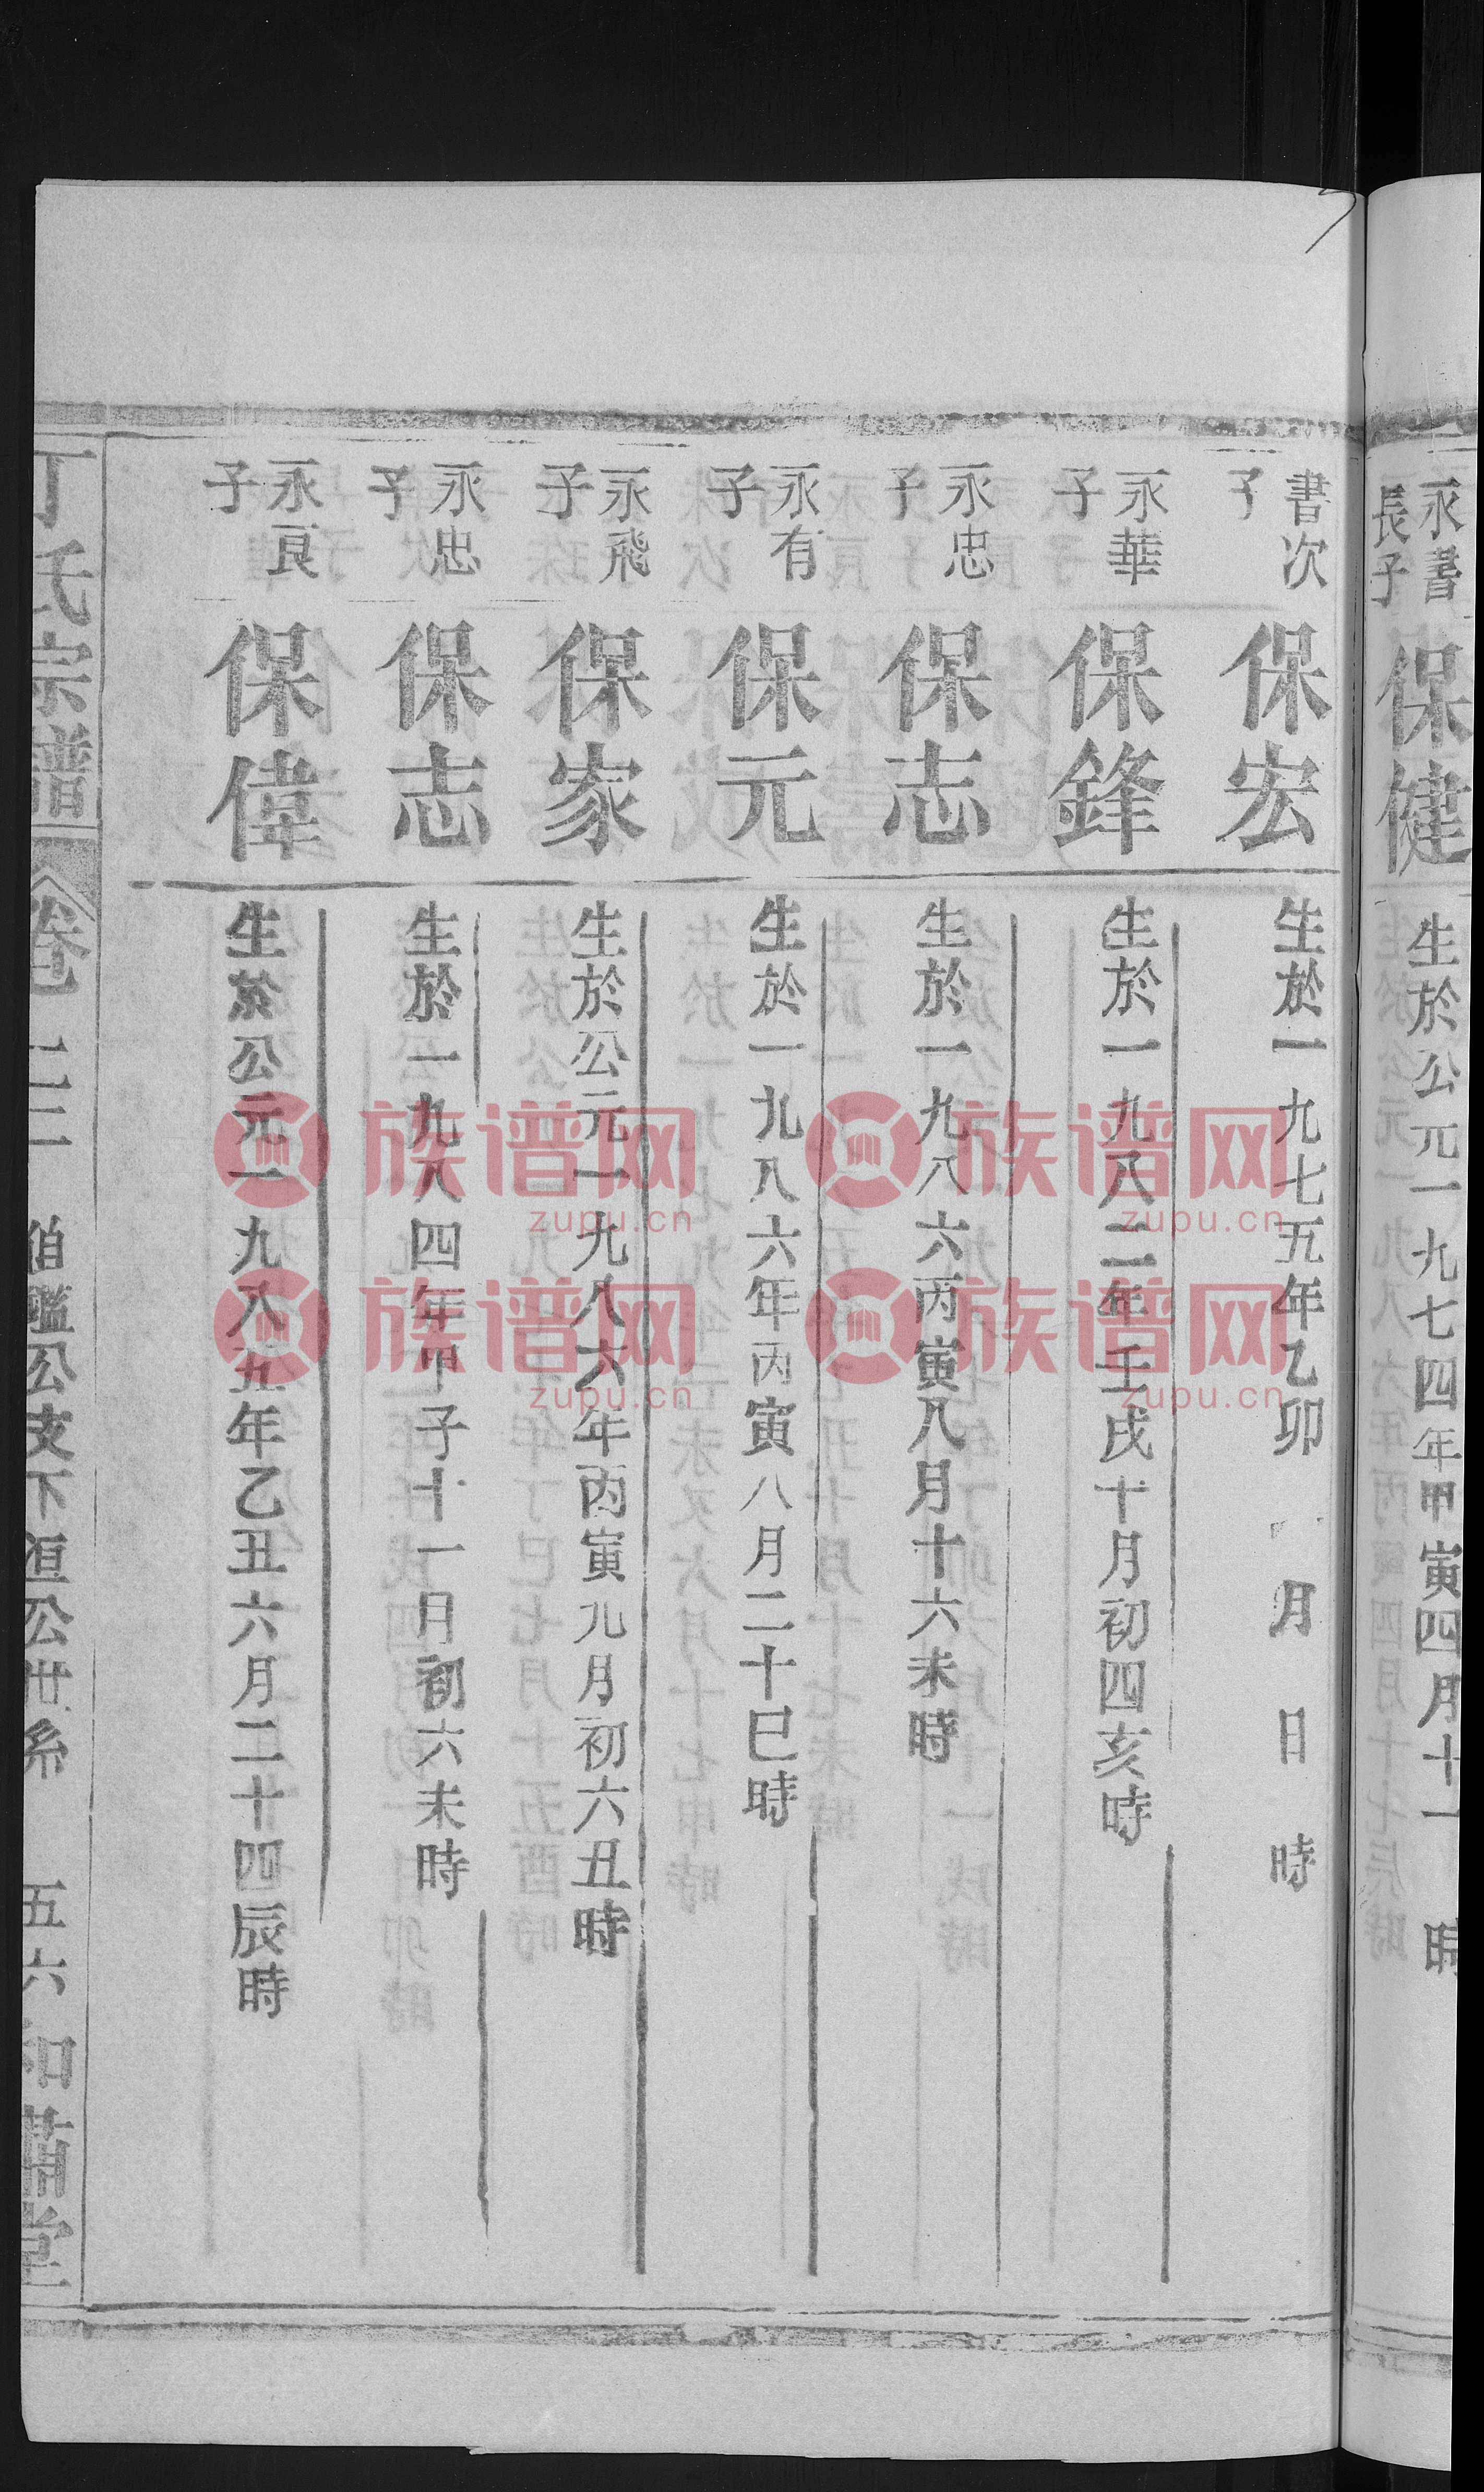 永書長子
保健
生於公元一九七四年甲寅四月十一 時
書次子
保宏
生於一九七五年乙卯 月 日 時
永華子
保鋒
生於一九八二年壬戌十月初四亥時
永忠子
保志
生於一九八六丙寅八月十六未時
永有子
保元
生於一九八六年丙寅八月二十巳時
永飛子
保家
生於公元一九八六年丙寅九月初六丑時
永忠子
保志
生於一九八四年甲子十一月初六未時
永良子
保偉
生於公元一九八五年乙丑六月二十四辰時
丁氏宗譜
卷
公支下恒公世系
五六
和
堂
族谱网
zupu.cn
族谱网
zupu.cn
族谱网
zupu.cn
族谱网
zupu.cn